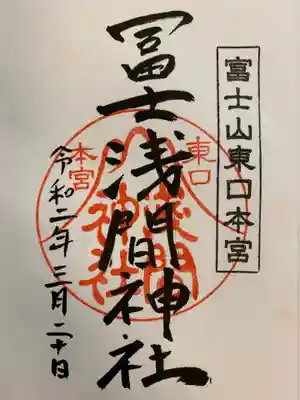 富士山東口本宮
冨士浅間神社
令和二年三月二十日
東口
本宮
浅間
神社